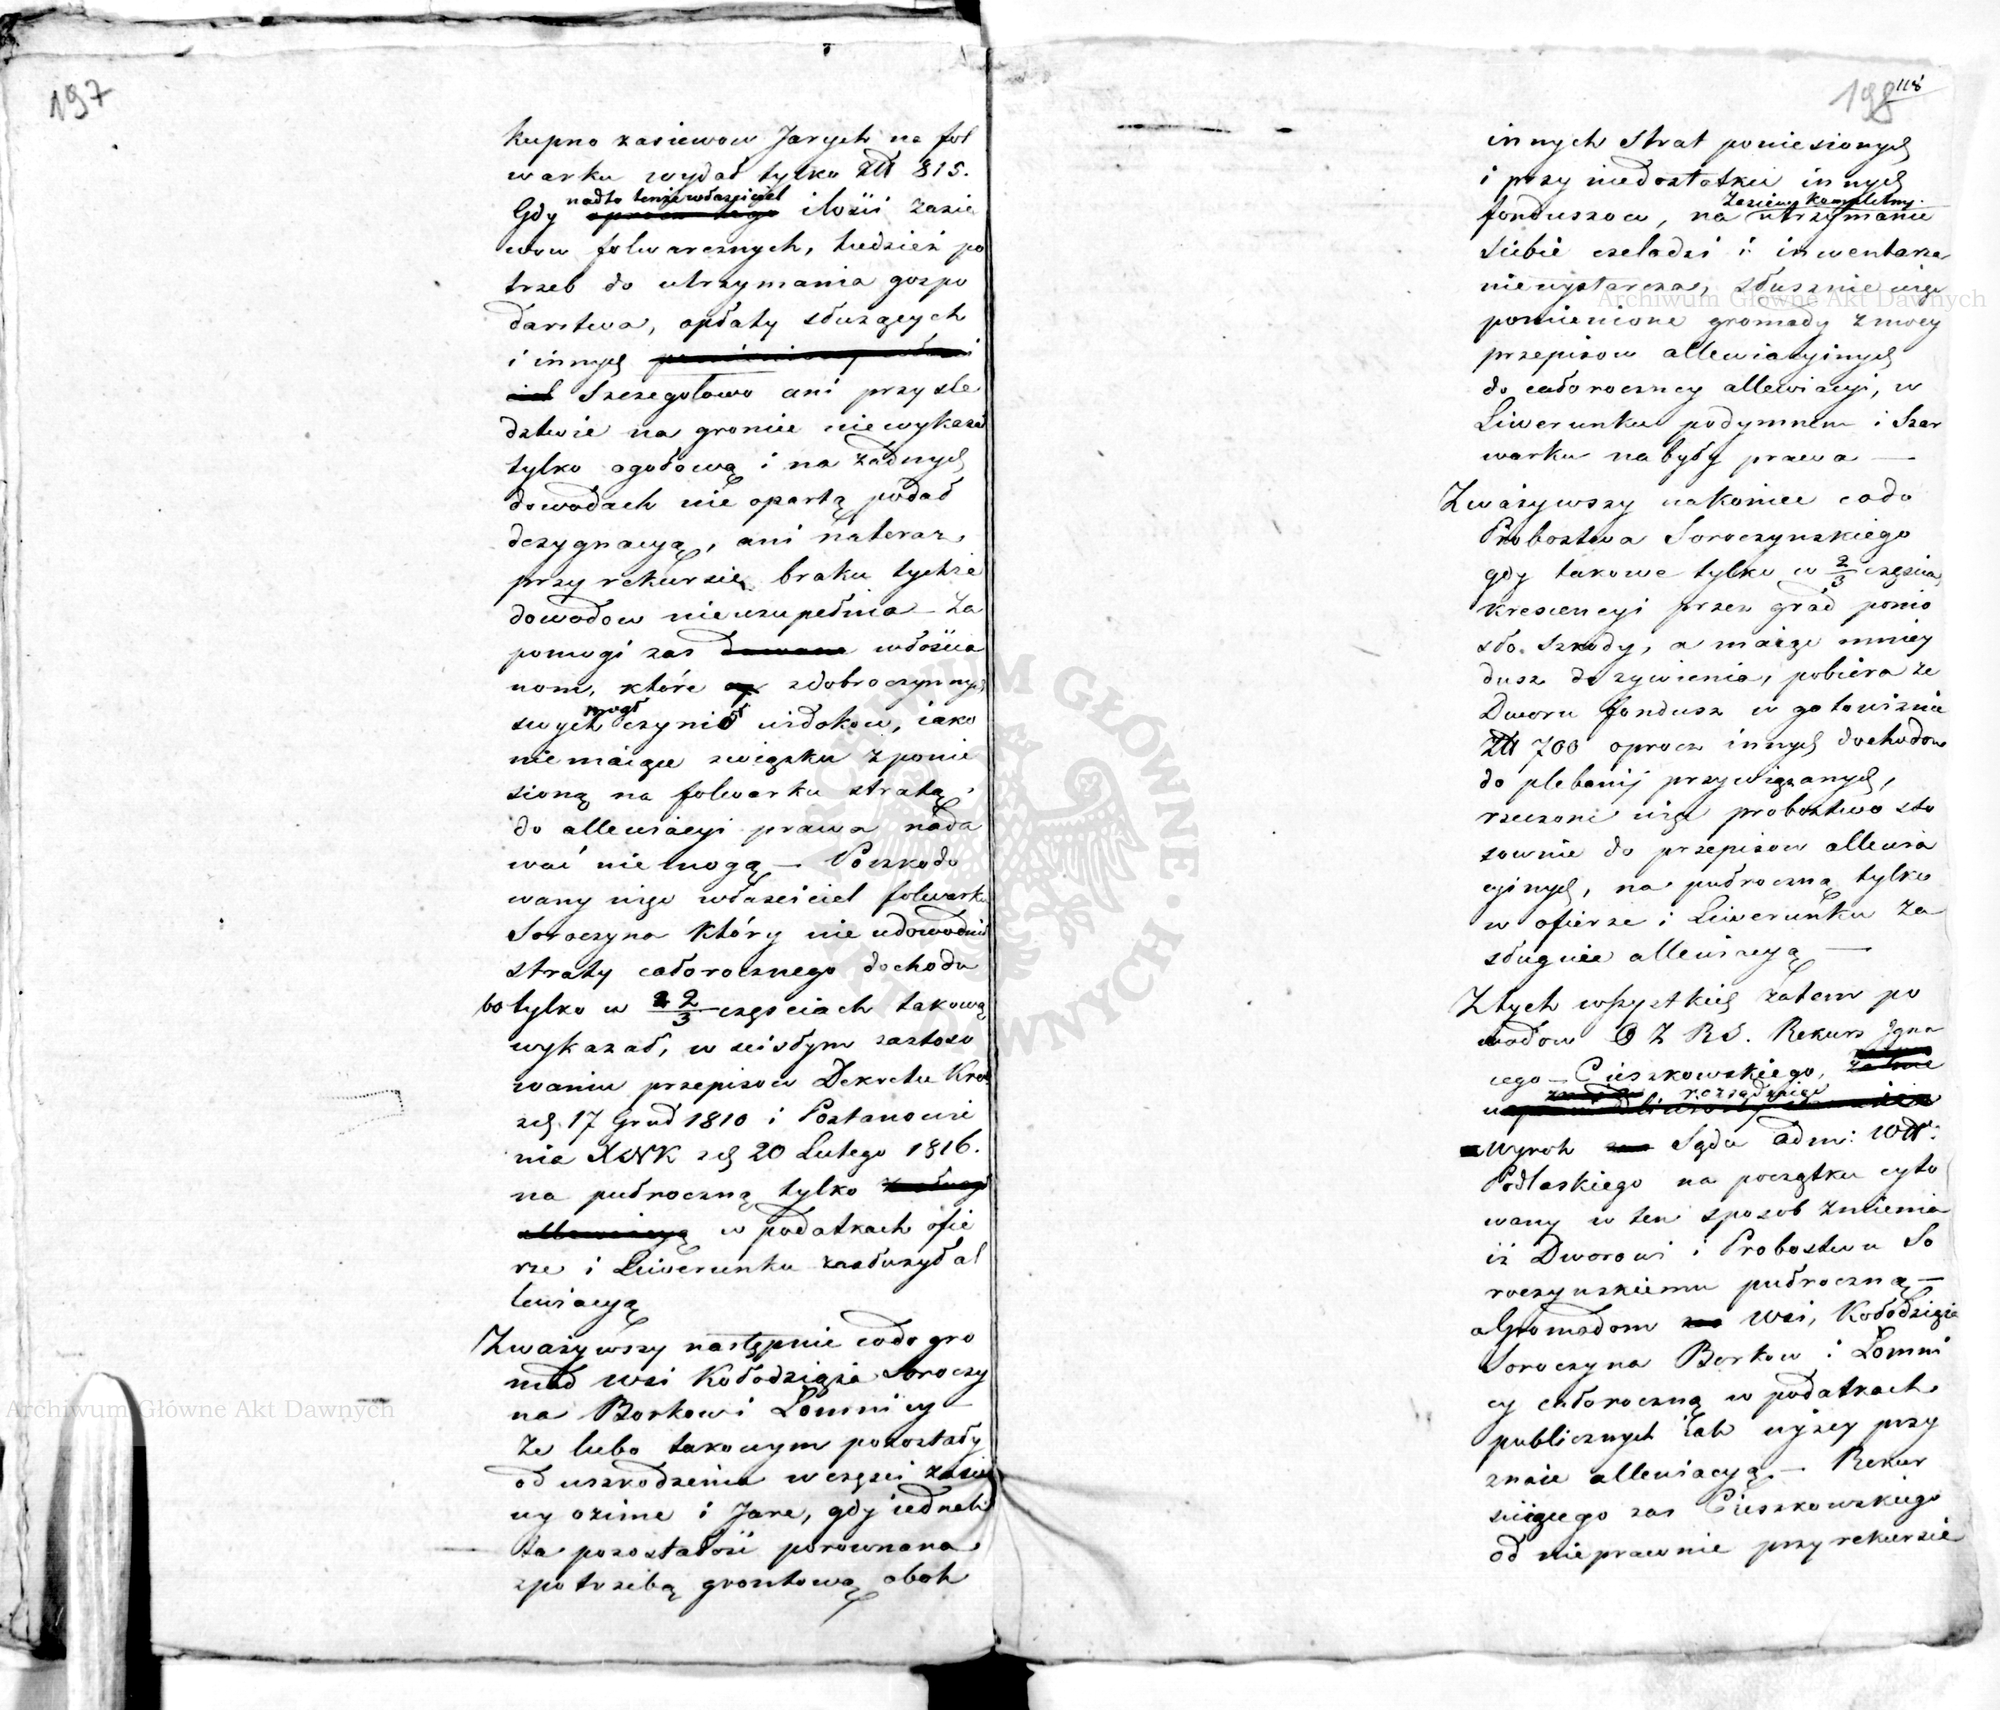 197
kupno zasiewow Jarych na fol
warku wydał tylko Złł 815.
nadto tenże właściciel
Gdy oprocz tego ilości zasie
wow folwarcznych, tudzież po
trzeb do utrzymania gospo
darstwa, opłaty służących
i innych
Szczegolowo ani przy sle
dztwie na groncie nie wykazał
tylko ogołową i na żadnych
dowodach nie opartą podał
dezygnacyą, ani nateraz
przy rekursie braku tychże
dowodow nieuzupełnia – Za
pomogi zas dawane włościa
nom, które z dobroczynnych
mogł
swych czynić widokow, iako
nie maiące związku z ponie
sioną na folwarku stratą,
do allewiacyi prawa nada
wać nie mogą – Poszkodo
wany więc właściciel folwarku
Soroczyna który nie udowodnił
straty całorocznego dochodu
bo tylko w 2/3 częściach takową
wykazał, w scisłym zastoso
waniu przepisow Dekretu Kró
z d. 17 Grud 1810 i Postanowie
nia XNK z d 20 Lutego 1816.
na pułroczną tylko
allewiacyą w podatkach ofie
rze i Liwerunku zasłużył al
lewiacyą
Zważywszy następnie co do gro
mad wsi Kołodziąża Soroczy
na Borkow i Łomnicy –
że lubo takowym pozostały
od uszkodzenia w części zasie
wy ozime i Jare, gdy iednak
ta pozostałość porównana
z potrzebą grontową obok
198 118
innych strat poniesionych
i przy niedostatku innych
zasiewy kompletny.
funduszow, na utrzymanie
siebie czeladzi i inwentarza
niewystarcza, słusznie więc
pomienione gromady z mocy
przepisow allewiacyinych
do całoroczney allewiacyi, w
Liwerunku podymnem i Szar
warku nabyły prawa —
Zważywszy nakoniec co do
Probostwa Soroczynskiego
gdy takowe tylko w 2/3 częścia
krescencyi przez grad ponio
sło szkody, a maiąc mniey
dusz do żywienia, pobiera ze
Dworu fundusz w gotowiznie
Złł 700 oprocz innych dochodow
do plebanij przywiązanych,
rzeczone więc probostwo sto
sownie do przepisow allewia
cyinych, na pułroczną tylko
w ofierze i Liwerunku za
sługuie allewiacyą —
Z tych wszystkich zatem po
wodow O Z R S. Rekurs Igna
cego Cieszkowskiego,
rozsądziąc
Wyrok Sądu adm: Wdt:
Podlaskiego na początku cyto
wany w ten sposob zmienia
iż Dworowi i Probostwu So
roczynskiemu pułroczną –
a Gromadom wsi, Kołodziąża
Soroczyna Borkow i Łomni
cy całoroczną w podatkach
publicznych iak wyżey przy
znaie allewiacyą – Rekur
suiącego zas Cieszkowskiego
od nieprawnie przy rekursie